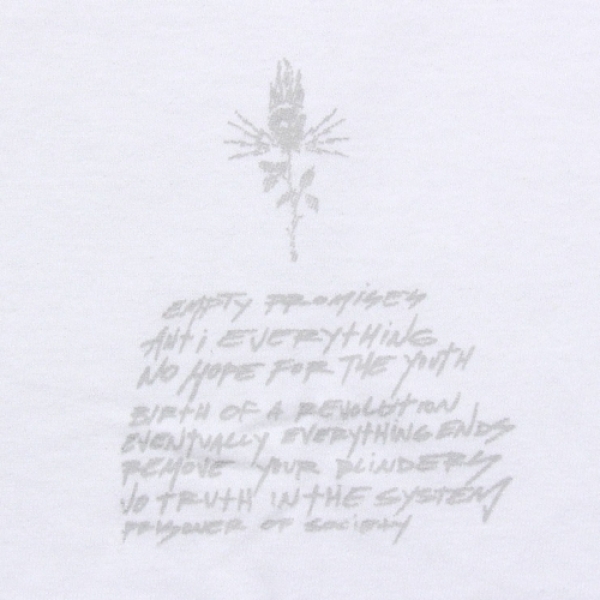 EMPTY PROMISES
ANTi EVERYTHING
NO HOPE FOR THE YOUTH
BIRTH OF A REVOLUTION
EVENTUALLY EVERYTHING ENDS
REMOVE YOUR BLINDERS
NO TRUTH IN THE SYSTEM
PRISONER OF SOCIETY